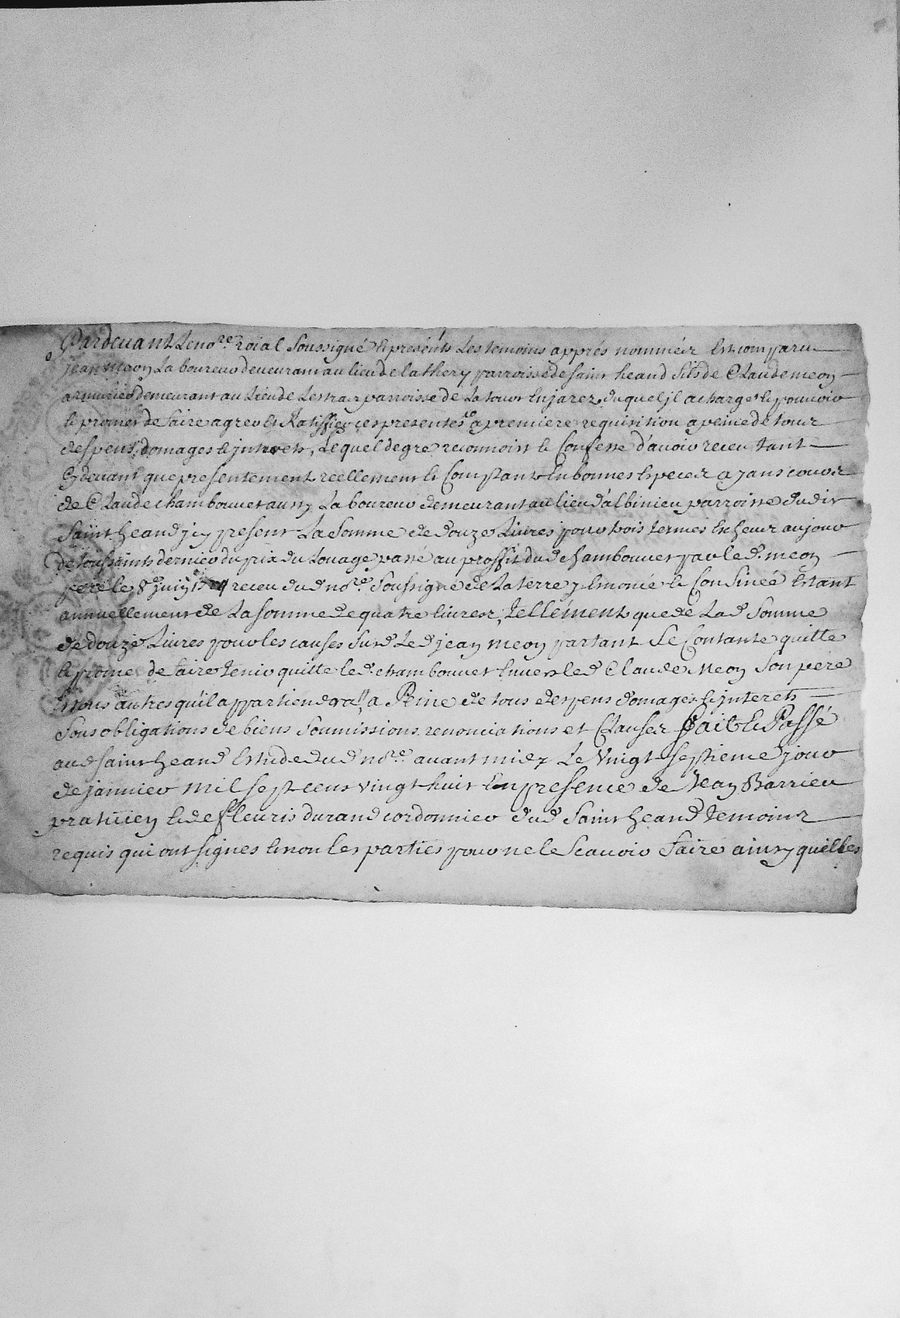 Pardevant Le no.re roial soussigné & presents Les temoins apprés nommez Est comparu
jean Meon Laboureur demeurant au lieu de Lathery parroisse de saint heand fils de Claude meon
armurier demeurant au Lieu de Lestra parroisse de La tour En jarez duquel jl a charge & pouvoir
& promet de faire agreer & Ratiffier ces presentes a premiere requisition a peine de tous
despens, domages & jnterets, Lequel de gre reconnoist & Confesse d'avoir receu tant
Cy devant que presentement reellement & Comptant En bonnes Especes ayans cours
de Claude chambouvet aussy Laboureur demeurant au lieu d'albinieu parroisse dudit
Saint heand jcy present La somme de douze Livres pour trois termes Echeux au jour
de toussaints dernier du prix du Louage passé au proffit dud chambouvet par led. meon
pere le 8e juin receu dud no.re soussigné de La terre y Enoncé & Confinée Estant
annuellement de La somme de quatre livres, tellement que de Lad. somme
de douze Livres pour les causes susd. Led. jean meon partant se Contante quitte
& promet de faire tenir quitte led. chambouvet Envers led. Claude Meon son pere
& tous autres qu'il appartiendra a Peine de tous despens domages & jnterets
Sous obligations de biens soumissions renonciations et Clauses fait & Passé
aud saint heand Estude dud. no.re avant midy Le vingt septieme jour
de janvier mil sept cens vingt huit En presence de Jean Barrieu
praticien & de fleuris durand cordonnier dud. saint heand temoins
requis qui ont signes & non les parties pour ne le scavoir faire ainsy quelles